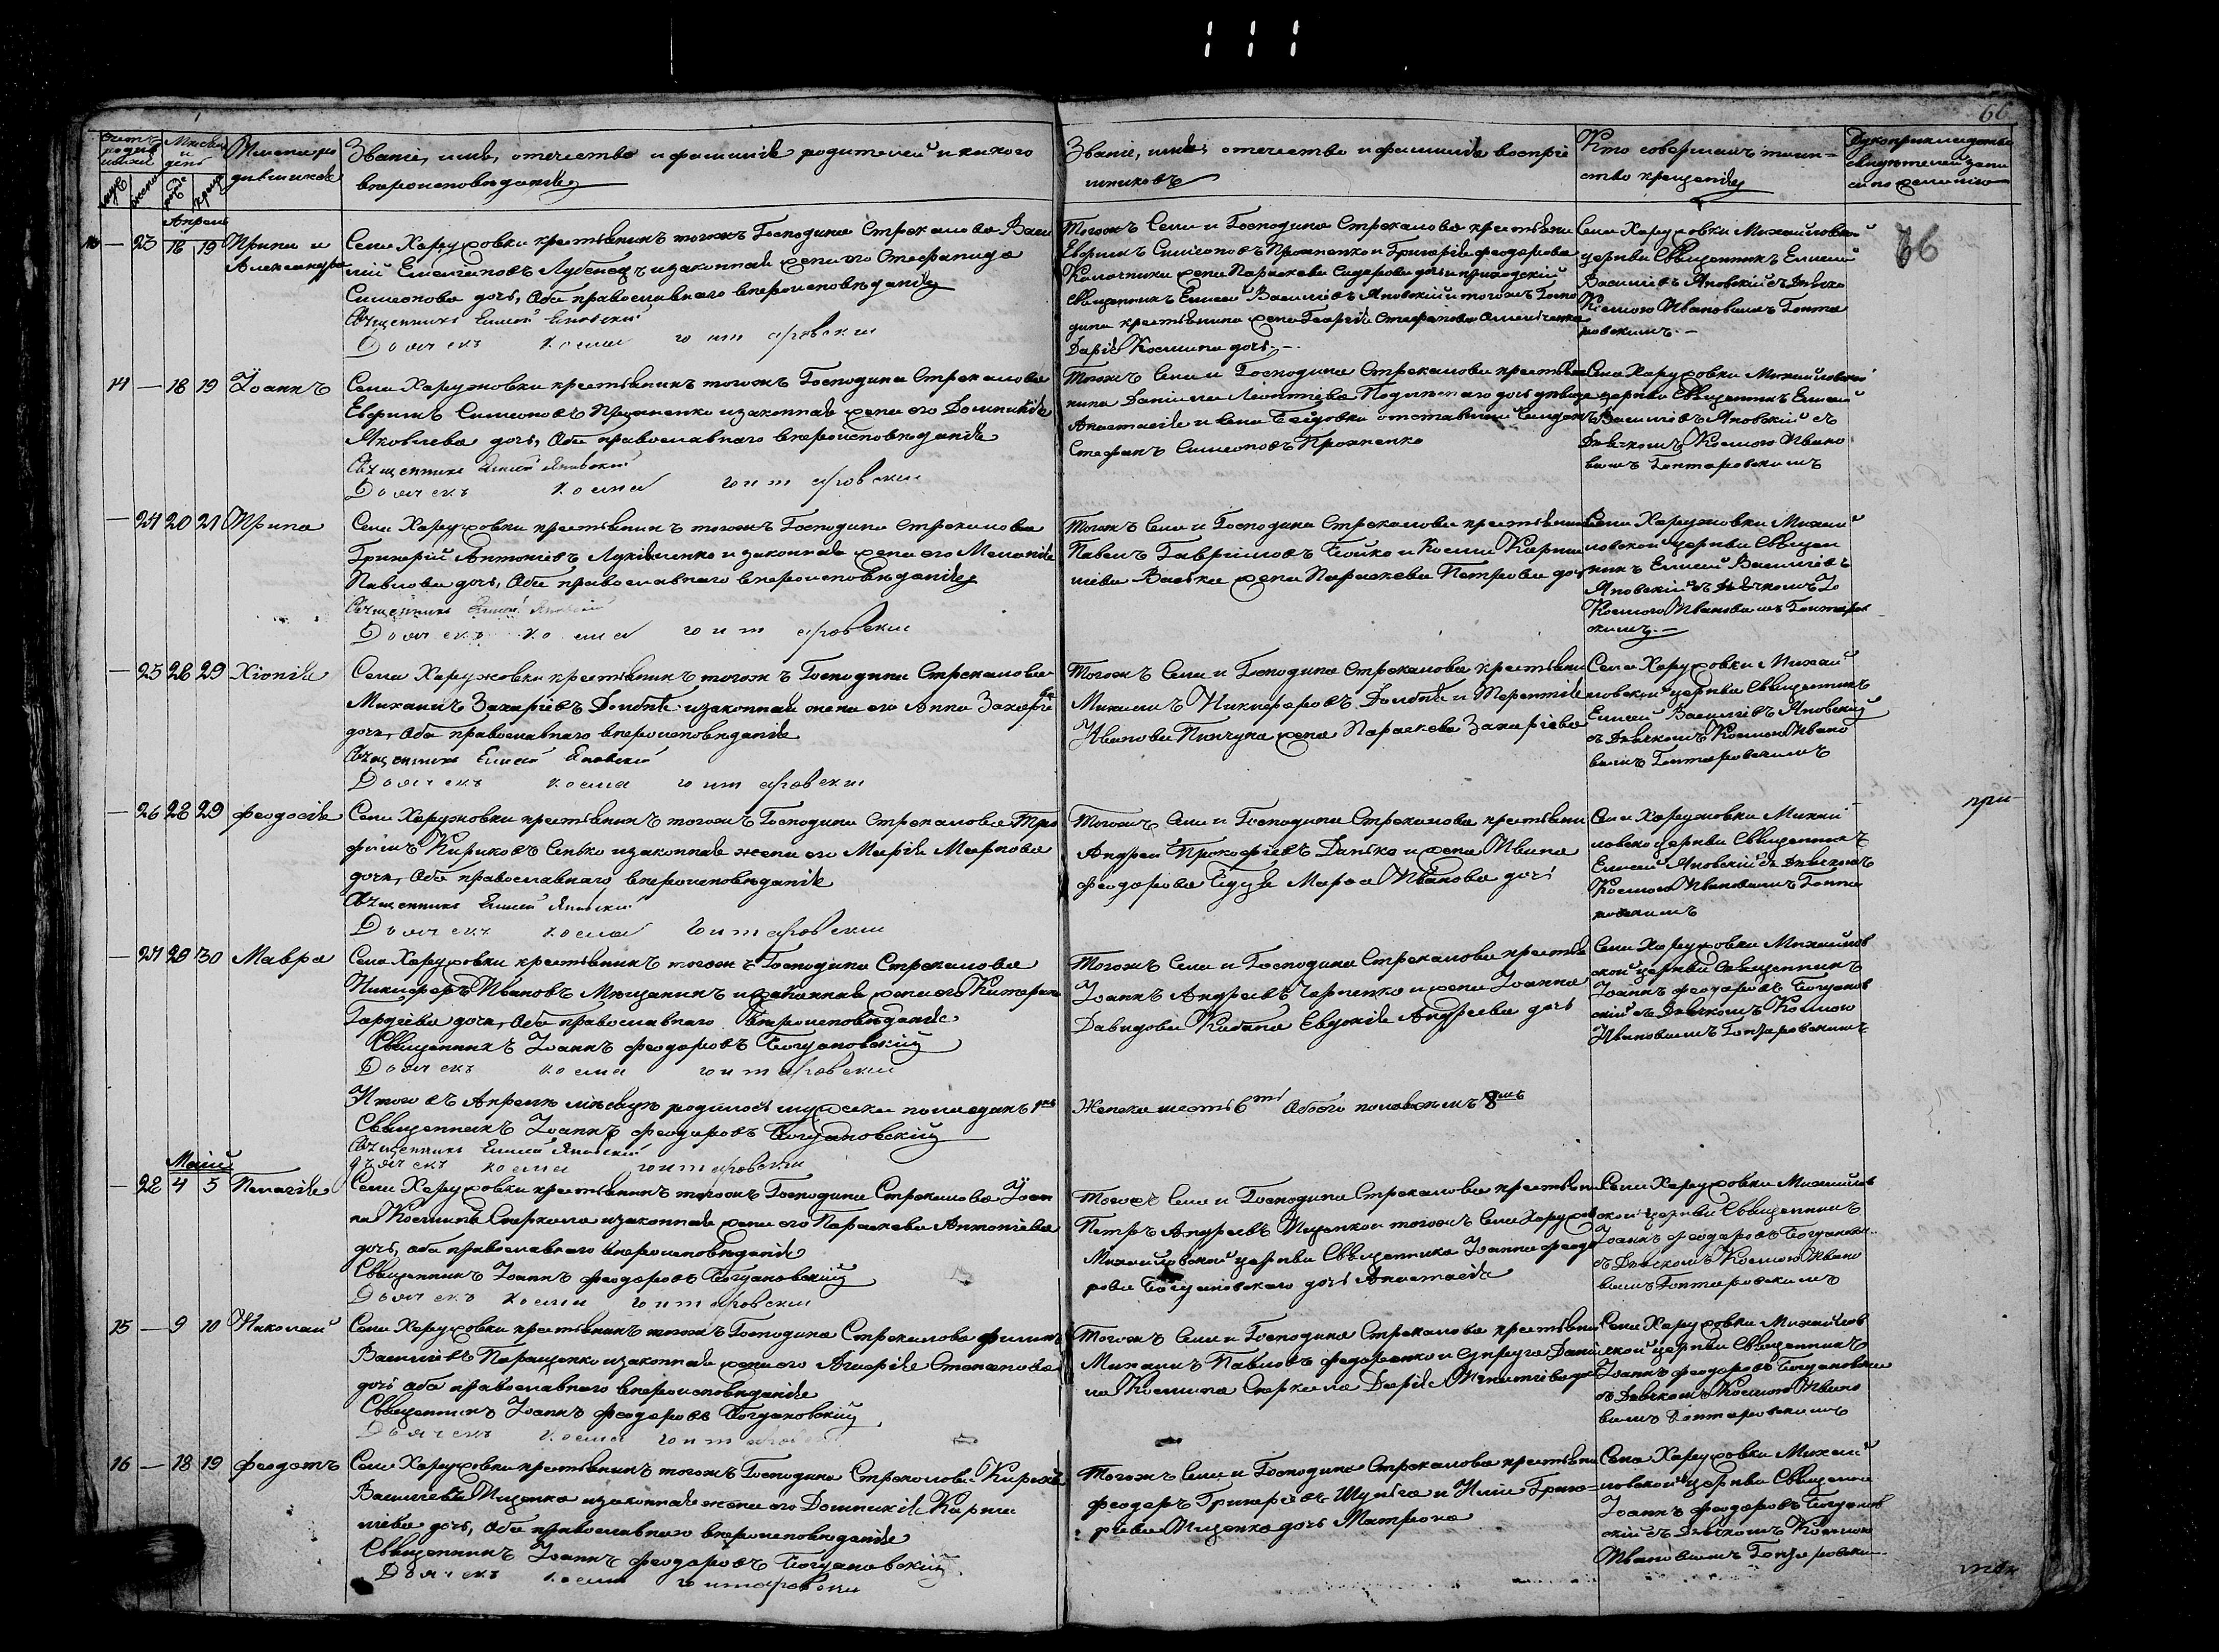 66
Счетъ родившихся
Месяцъ и день
Имена родившихся
Званіе, имя, отечество и фамилія родителей и какого
вероисповѣданія
Званіе, имя, отечество и фамилія воспріе
мниковъ
Кто совершалъ таин=
ство крещенія
Рукоприкладство
свидѣтелей запи
си по желанію
Апрель
66
— 23 18 19 Ирина и
Александра
Села Харуховки крестьянинъ тогожъ Господина Стрекалова Васи
лій Емельяновъ Лубенецъ изаконная жена его Стефанида
Симеонова дочь, Оба православнаго вероисповѣданія
Священникъ Елисей Яновскій
Дьячекъ Косма Гонтаровскій
Тогожъ Села и Господина Стрекалова крестьяни
Евфимъ Симеоновъ Проненко и Григорія Феодорова
жена Параскева Сидорова дочь и приходскій
священникъ Елисей Васильевъ Яновскій и тогожъ Госпо
дина крестьянина жена Георгія Стефанова
Дарія Космина дочь.—
Села Харуховки Михайловской
церкви Священникъ Елисей
Васильевъ Яновскій съ Дьячко
Космою Ивановымъ Гонта
ровскимъ.—
14 — 18 19 Іоаннъ
Села Харужовки крестьянинъ тогожъ Господина Стрекалова
Евфимъ Симеоновъ Проненко изаконная жена его Домникія
Яковлева дочь, Оба православнаго вероисповѣданія
Священникъ Елисей Яновскій
Дьячекъ Косма Гонтаровскій
Тогожъ Села и Господина Стрекалова крестья
нина Даніила Леонтіева дочь девица
Анастасія и села отставный
Стефанъ Симеоновъ Проненко
Села Харужовки Михайловской
церкви Священникъ Елисей
Васильевъ Яновскій съ
Дьячкомъ Космою Ивано
вымъ Гонтаровскимъ
— 24 20 21 Ирина
Села Харуховки крестьянинъ тогожъ Господина Стрекалова
Григорій Антоніевъ Лукьяненко изаконная жена его Меланія
Павлова дочь, Оба православнаго вероисповѣданія
Священникъ Елисей Яновскій
Дьячекъ Косма Гонтаровскій
Тогожъ Села и Господина Стрекалова крестьянинъ
Павелъ Гавріиловъ Бойко и Космы Карни
ліева Васька жена Параскева Петрова дочь
Села Харужовки Михай
ловской церкви Священ
никъ Елисей Васильевъ
Яновскій съ Дьячкомъ
Космою Ивановымъ Гонтаров
скимъ.—
— 25 28 29 Хіонія
Села Харужовки крестьянинъ тогожъ Господина Стрекалова
Михаилъ Захаріевъ Долбня изаконная жена его Анна Захаріева
дочь, Оба православнаго вероисповѣданія
Священникъ Елисей Яновскій
Дьячекъ Косма Гонтаровскій
Тогожъ Села и Господина Стрекалова крестьяни
Михаилъ Никифоровъ Долбня и Терентія
Иванова Пинчука жена Параскева Захаріева
Села Харуховки Михай
ловской церкви Священникъ
Елисей Васильевъ Яновскій
съ Дьячкомъ Космою Ивано
вымъ Гонтаровскимъ
— 26 28 29 Феодосія
Села Харужовки крестьянинъ тогожъ Господина Стрекалова Тро
фимъ Кириковъ Сенько изаконная жена его Марія Маркова
дочь, Оба православнаго вероисповѣданія
Священникъ Елисей Яновскій
Дьячекъ Косма Гонтаровскій
Тогожъ Села и Господина Стрекалова крестьяни
Андрей Прокофіевъ Данько и жена Ивана
Феодорова Марфа Иванова дочь
Села Харужовки Михай
ловско церкви Священникъ
Елисей Яновскій съ Дьячкомъ
Космою Ивановымъ Гонта
ровскимъ
при
— 27 29 30 Мавра
Села Харуховки крестьянинъ тогожъ Господина Стрекалова
Никифоръ Ивановъ Мещанинъ изаконная жена его Катерина
Гордіева дочь, Оба православнаго вероисповѣданія
Священникъ Іоаннъ Феодоровъ Богдановскій
Дьячекъ Косма Гонтаровскій
Тогожъ Села и Господина Стрекалова крестья
Іоаннъ Андреевъ Чарненко и жена Іоанна
Давидова Кабана Евдокія Андреева дочь
Села Харуховки Михайлов
ской церкви священникъ
Іоаннъ Феодоровъ Богданов
скій съ Дьячкомъ Космою
Ивановымъ Гонтаровскимъ
Итого въ Апреле месяце родилось мужеска пола
Священникъ Іоаннъ Феодоровъ Богдановскій
Священникъ Елисей Яновскій
Дьячекъ Косма Гонтаровскій
Женска шесть 6ть Обоего пола 8мъ
Маій
— 28 4 5 Пелагія
Села Харуховки крестьянинъ тогожъ Господина Стрекалова Іоан
нъ Косминъ Скаркала изаконная жена его Параскева Антоніева
дочь, оба православнаго вероисповѣданія
Священникъ Іоаннъ Феодоровъ Богдановскій
Дьячекъ Косма Гонтаровскій
Тогожъ Села и Господина Стрекалова крестьянинъ
Петръ Андреевъ Ищенко и тогожъ Села Харухов
Михайловской церкви Священника Іоанна Феодо
рова Богдановскаго дочь Анастасія
Села Харуховки Михайлов
ской церкви Священникъ
Іоаннъ Феодоровъ Богдановск
съ Дьячкомъ Космою Ивано
вымъ Гонтаровскимъ
15 — 9 10 Николай
Села Харуховки крестьянинъ тогожъ Господина Стрекалова Филипъ
Васильевъ Паращенко изаконная жена его Агафія Степанова
дочь оба православнаго вероисповѣданія
Священникъ Іоаннъ Феодоровъ Богдановскій
Дьячекъ Косма Гонтаровскій
Тогожъ Села и Господина Стрекалова крестьяни
Михаилъ Павловъ Федоренко и супруга Дани
ла Космина Скаркала Дарія Игнатіева дочь
Села Харуховки Михайлов
ской церкви Священникъ
Іоаннъ Феодоровъ Богдановски
съ Дьячкомъ Космою Ивано
вымъ Гонтаровскимъ
16 — 18 19 Феодотъ
Села Харуховки крестьянинъ тогожъ Господина Стрекалова
Васильевъ Ищенко изаконная жена его Домникія Карни
ліева дочь, Оба православнаго вероисповѣданія
Священникъ Іоаннъ Феодоровъ Богдановскій
Дьячекъ Косма Гонтаровскій
Тогожъ Села и Господина Стрекалова крестьяни
Феодоръ Григоріевъ Шульга и Иліи Григо=
ріева Ищенко дочь Матрона
Села Харуховки Михай
ловской церкви Священни
Іоаннъ Феодоровъ Богданов
скій съ Дьячкомъ Космою
Ивановымъ Гонтаровски